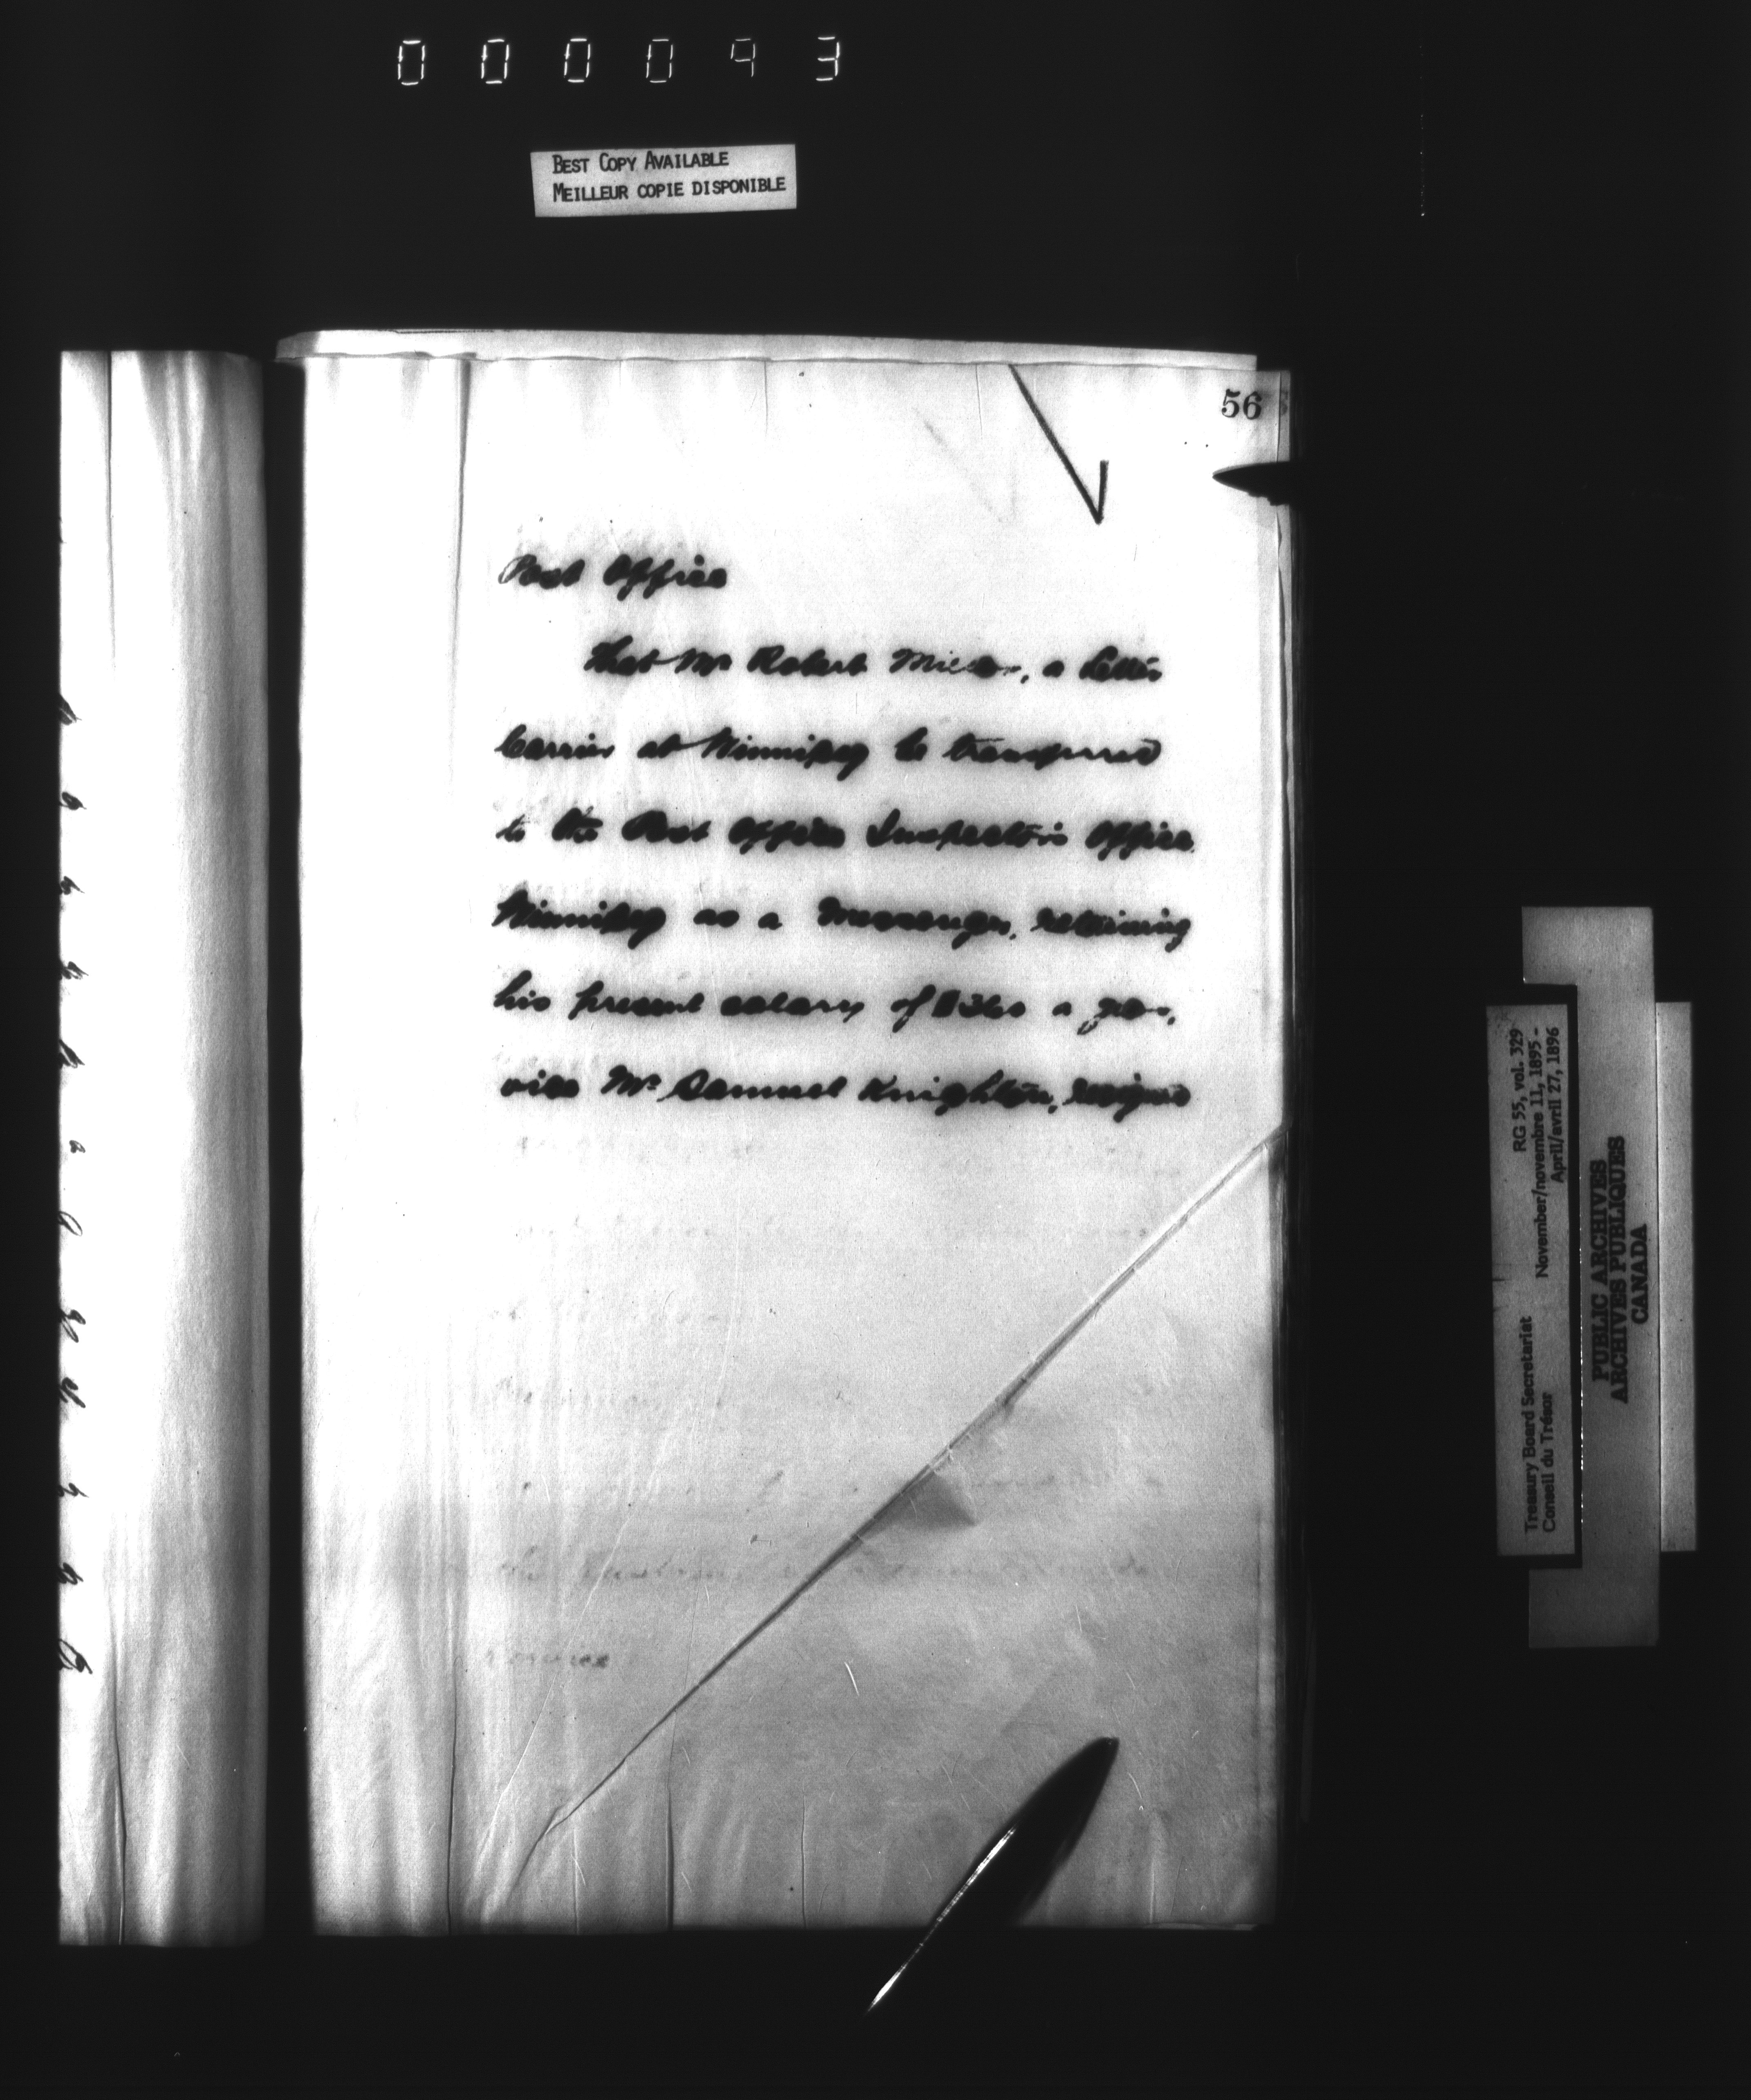 000093
BEST COPY AVAILABLE
MEILLEUR COPIE DISPONIBLE
56
Post Office
That Mr Robert Miller, a Letter
Carrier at Winnipeg be transferred
to the Post Office Inspector's Office,
Winnipeg as a Messenger, retaining
his present salary of $360 a year,
vice Mr Samuel Knighton, resigned
Treasury Board Secretariat RG 55, vol. 329
Conseil du Trésor November/novembre 11, 1895 -
April/avril 27, 1896
PUBLIC ARCHIVES
ARCHIVES PUBLIQUES
CANADA